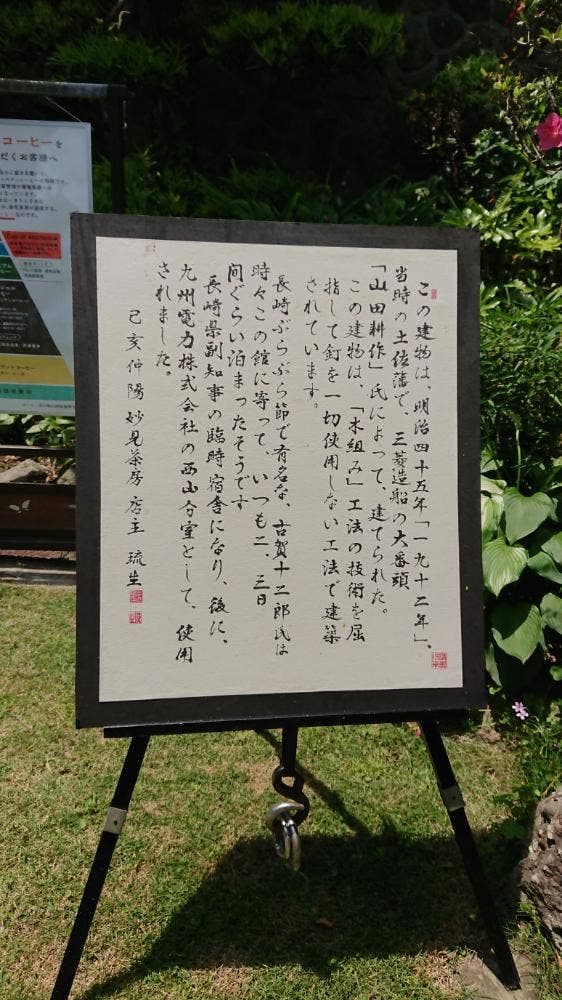 この建物は、明治四十五年「一九十二年」、
当時の土佐藩で、三菱造船の大番頭
「山田耕作」氏によって、建てられた。
この建物は、「木組み」工法の技術を屈
指して釘を一切使用しない工法で建築
されています。
長崎ぶらぶら節で有名な、古賀十二郎氏は
時々この館に寄って、いつも二、三日
間ぐらい泊まったそうです
長崎県副知事の臨時宿舎になり、後に、
九州電力株式会社の西山分室として、使用
されました。
己亥仲陽 妙見茶房 店主 琉生
コーヒーを
だくお客様へ